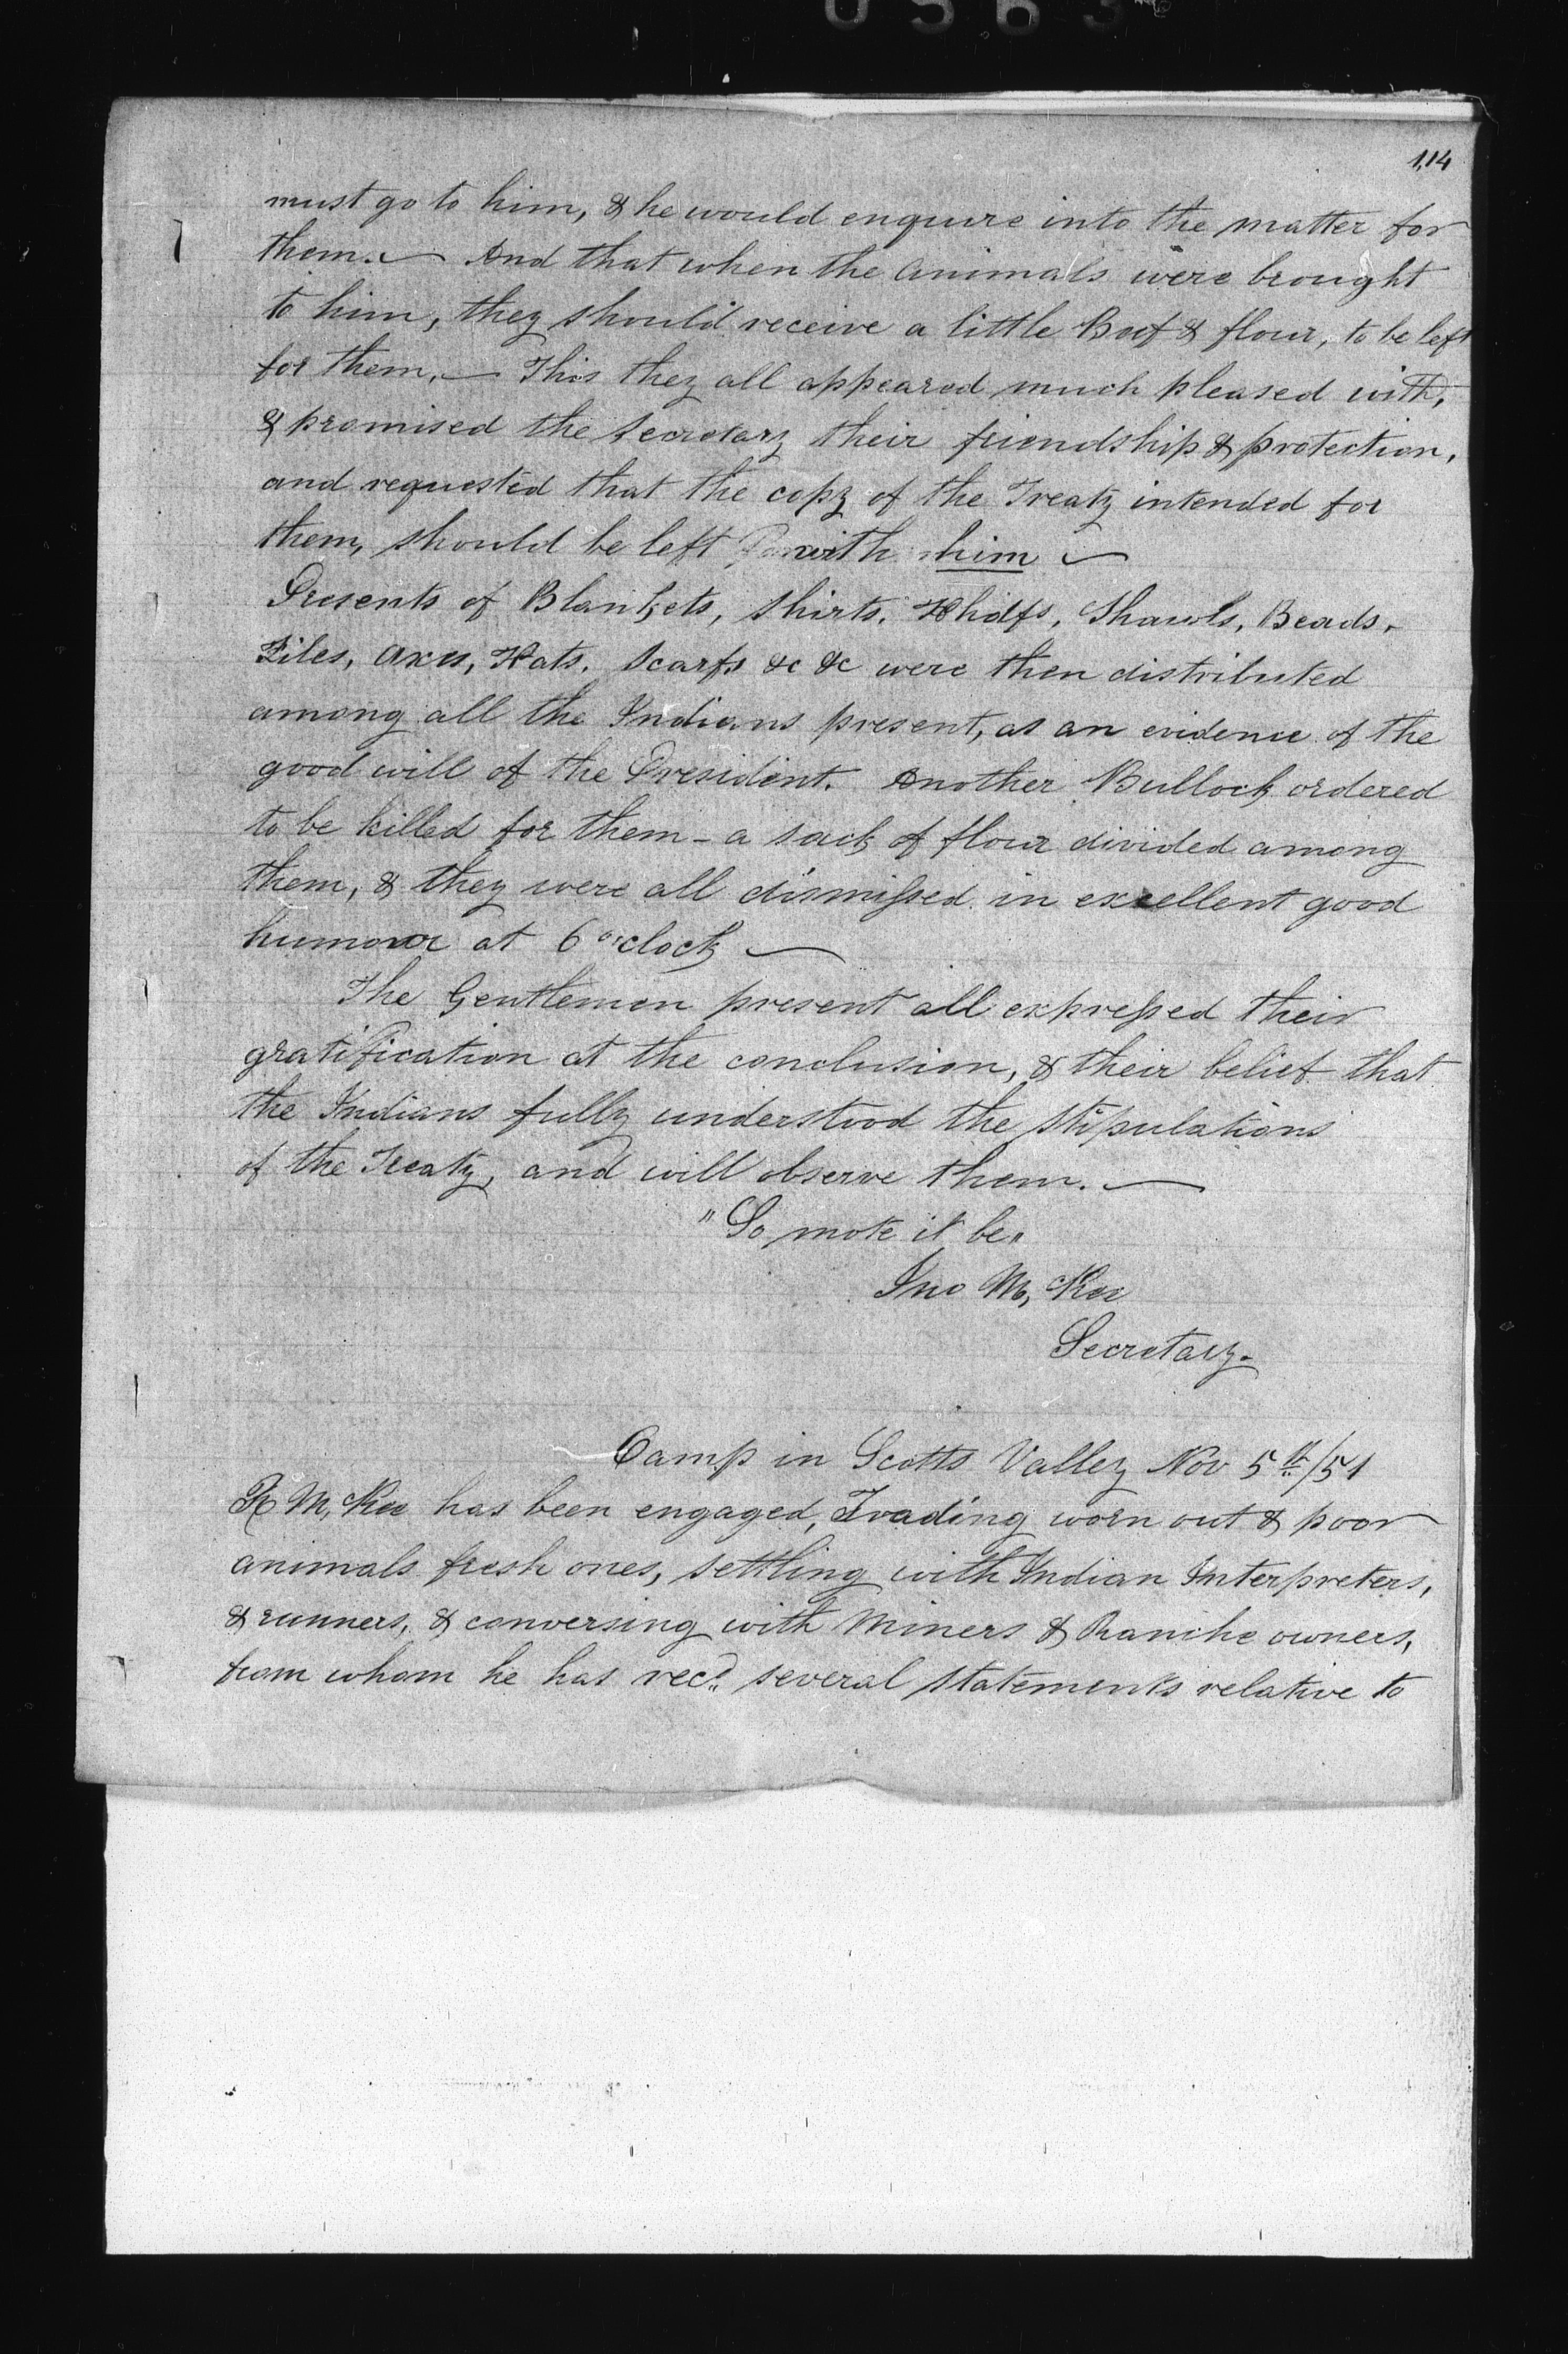 114
must go to him, & he would enquire into the matter for
them. — And that when the animals were brought
to him, they should receive a little Beef & flour, to be left
for them. — This they all appeared much pleased with,
& promised the Secretary their friendship & protection,
and requested that the copy of the Treaty intended for
them, should be left with him —
Presents of Blankets, Shirts, Hhdfs, Shawls, Beads,
Files, Axes, Hats, Scarfs &c &c were then distributed
among all the Indians present, as an evidence of the
good will of the President. Another Bullock ordered
to be killed for them - a sack of flour divided among
them, & they were all dismissed in excellent good
humour at 6 o'clock —
The Gentlemen present all expressed their
gratification at the conclusion, & their belief that
the Indians fully understood the stipulations
of the Treaty, and will observe them. —
"So mote it be"
Jno McKee
Secretary.
Camp in Scotts Valley Nov 5th/51
R McKee has been engaged, Trading worn out & poor
animals fresh ones, settling with Indian Interpreters,
& runners, & conversing with Miners & Ranche owners,
from whom he has recd. several statements relative to